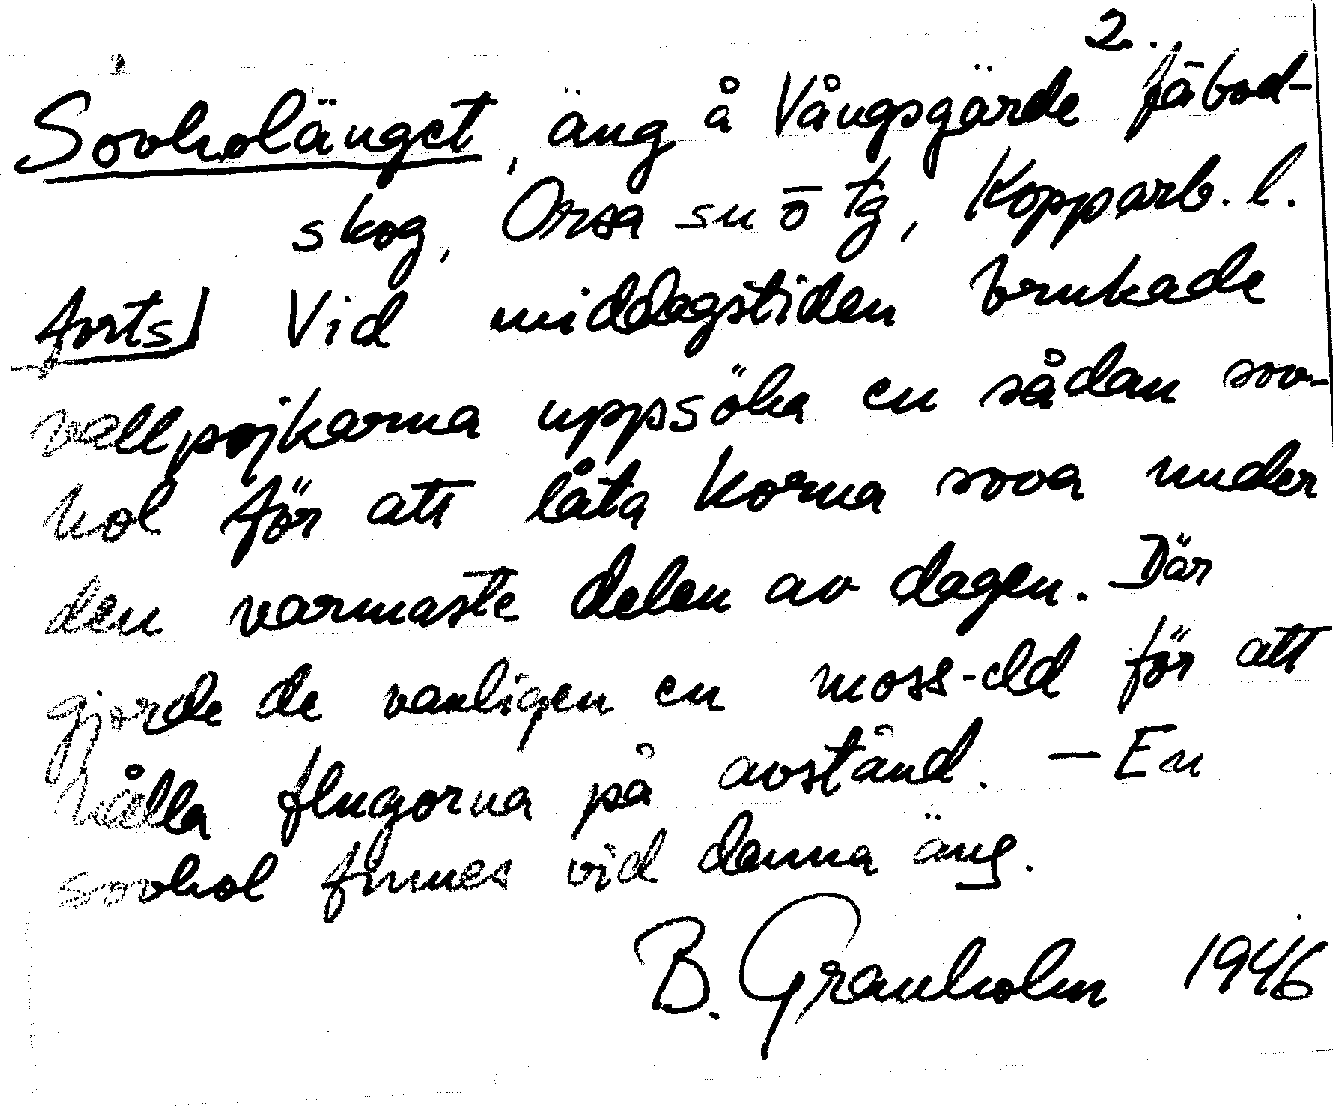 2.
Sovholänget, äng å Vångsgärde fäbod-
skog, Orsa sn o tg, Kopparb. l.
forts] Vid middagstiden brukade
vallpojkarna uppsöka en sådan sov-
hol för att låta korna sova under
den varmaste delen av dagen. Där
gjorde de vanligen en moss-eld för att
hålla flugorna på avstånd. — En
sovhol finnes vid denna äng.
B. Granholm 1946